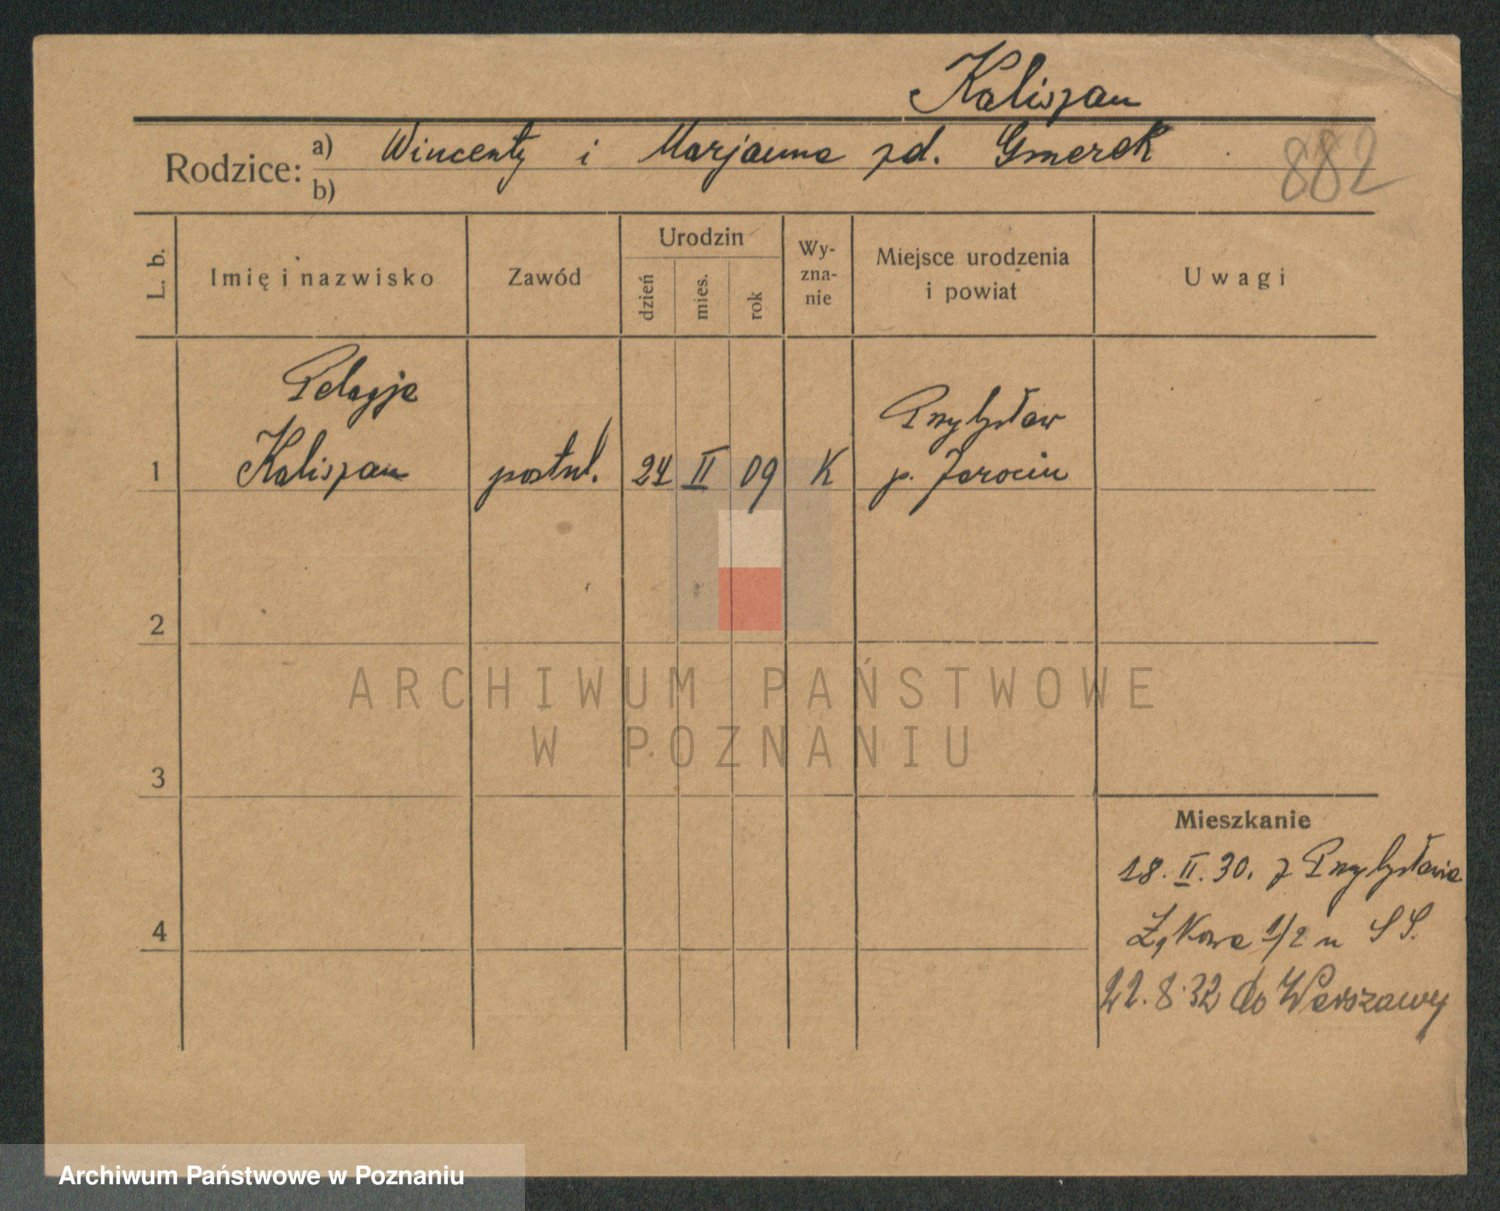 Kaliszan
882
Rodzice: a) Wincenty i Marjanna zd. Gmerek
b)
L. b.
Imię i nazwisko
Zawód
Urodzin
dzień
mies.
rok
Wy-
zna-
nie
Miejsce urodzenia
i powiat
Uwagi
Pelagja
Przybysław
1 Kaliszan postul. 24 II 09 K p. Jarocin
2
ARCHIWUM PAŃSTWOWE
W POZNANIU
3
Mieszkanie
18. II. 30. z Przybysławia
4
Nowa 1/2 u S S.
22. 8. 32 do Warszawy
Archiwum Państwowe w Poznaniu